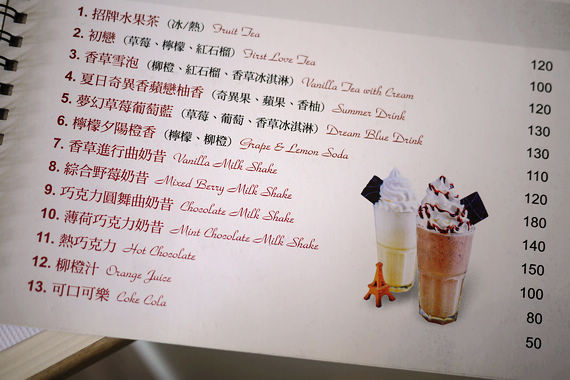 1. 招牌水果茶（冰/熱）Fruit Tea 120
2. 初戀（草莓、檸檬、紅石榴）First Love Tea 100
3. 香草雪泡（柳橙、紅石榴、香草冰淇淋）Vanilla Tea with Cream 120
4. 夏日奇異香蘋戀柚香（奇異果、蘋果、香柚）Summer Drink 130
5. 夢幻草莓葡萄藍（草莓、葡萄、香草冰淇淋）Dream Blue Drink 130
6. 檸檬夕陽橙香（檸檬、柳橙）Grape & Lemon Soda 110
7. 香草進行曲奶昔 Vanilla Milk Shake 120
8. 綜合野莓奶昔 Mixed Berry Milk Shake 180
9. 巧克力圓舞曲奶昔 Chocolate Milk Shake 140
10. 薄荷巧克力奶昔 Mint Chocolate Milk Shake 150
11. 熱巧克力 Hot Chocolate 100
12. 柳橙汁 Orange Juice 80
13. 可口可樂 Coke Cola 50